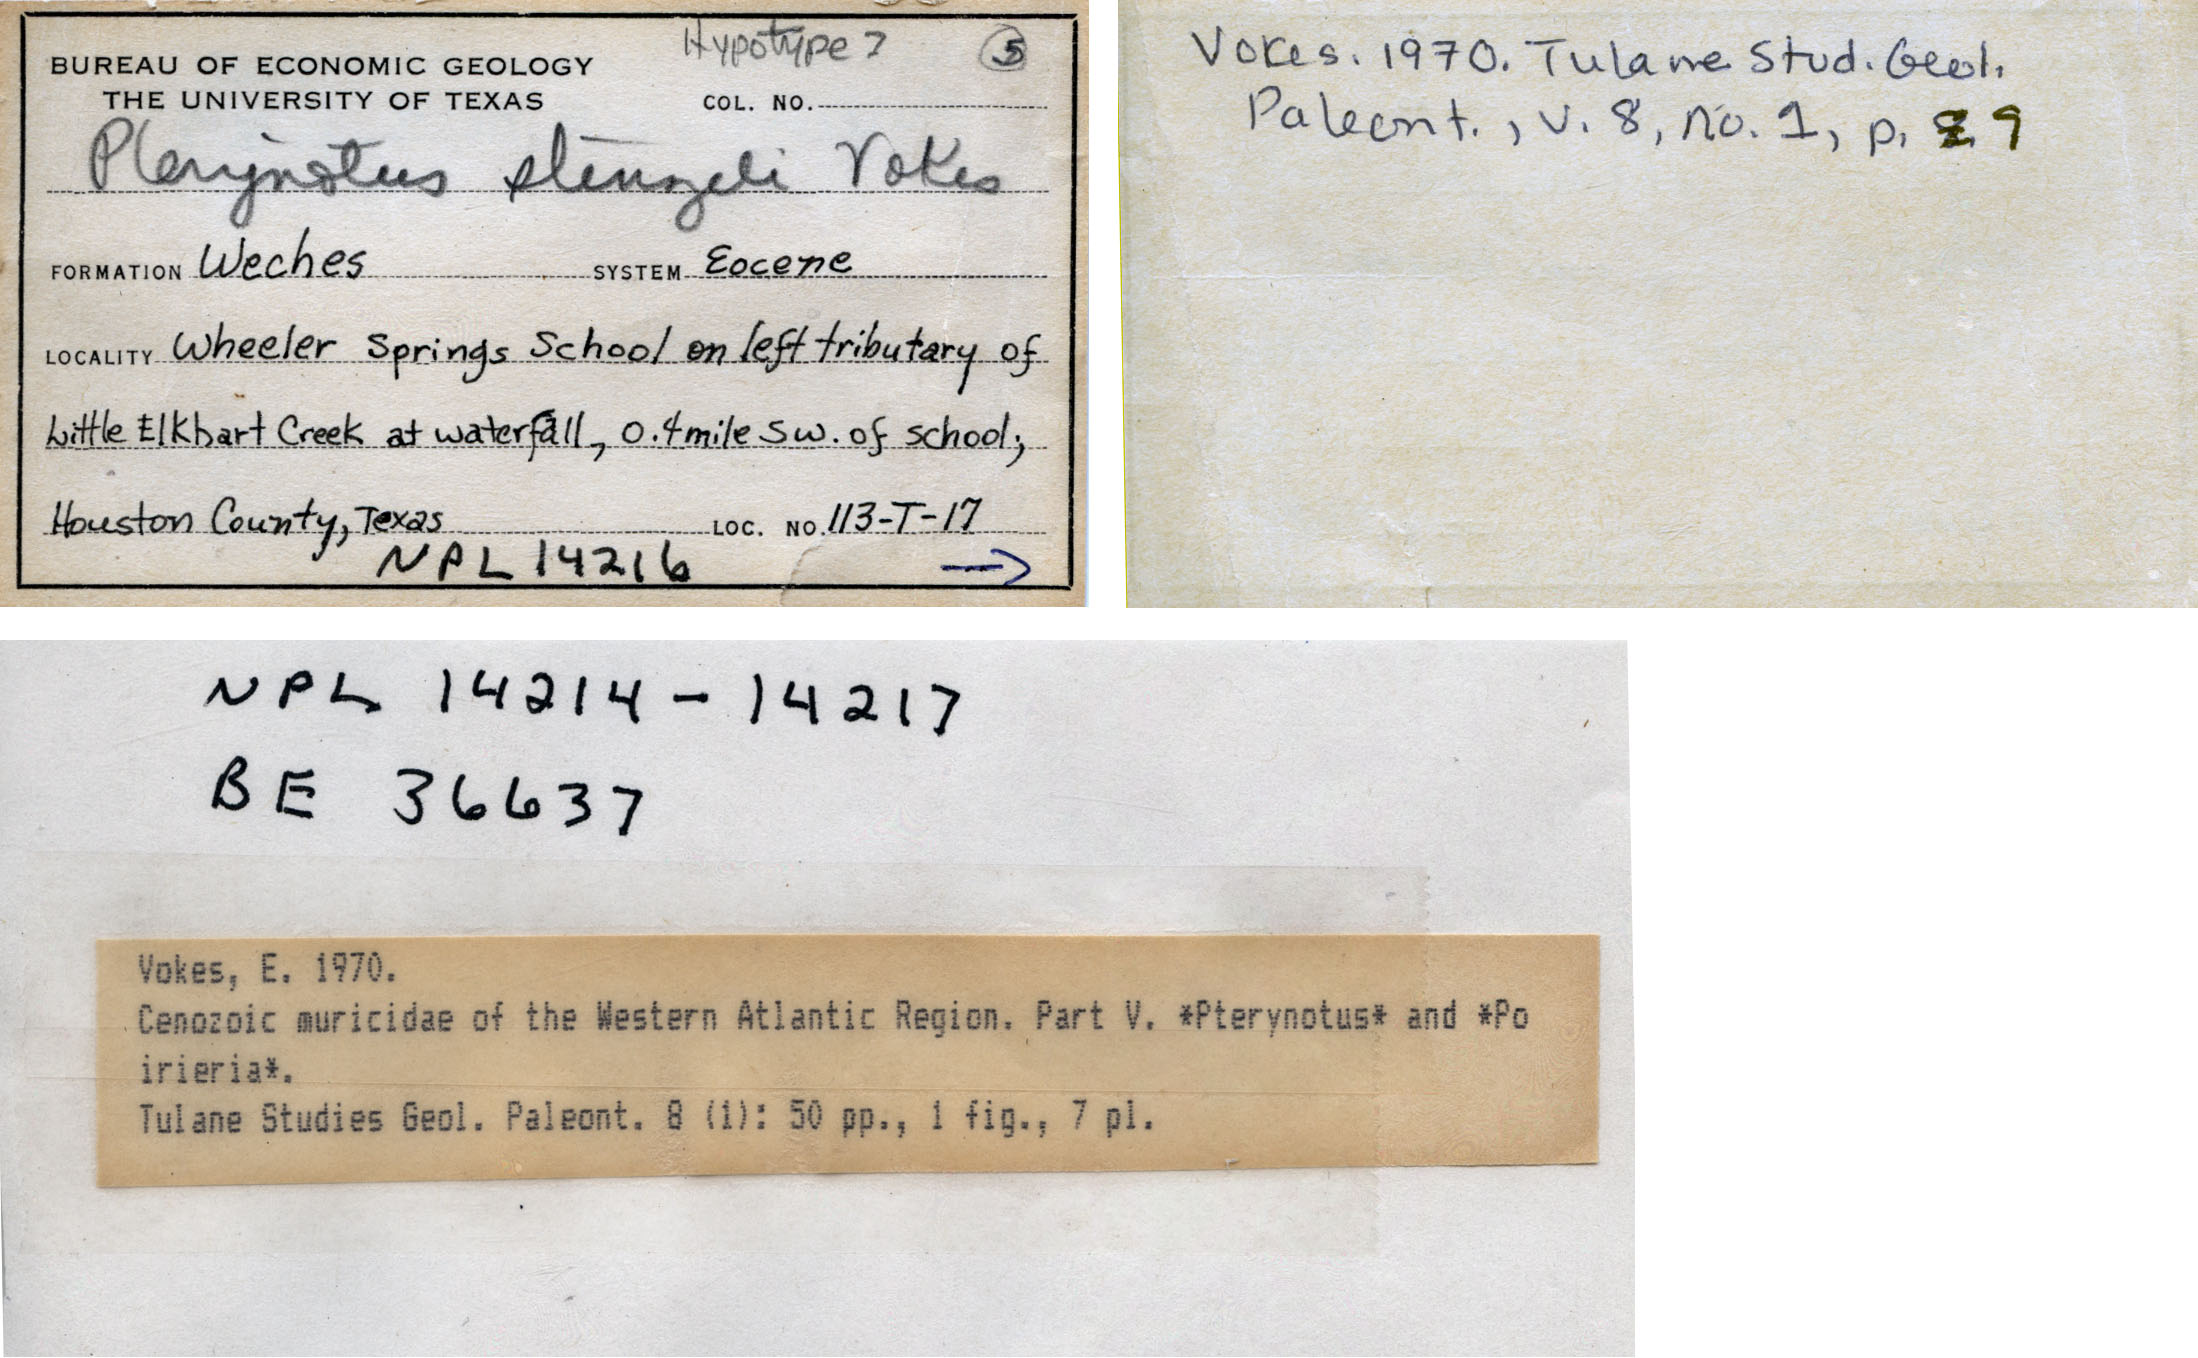 Hypotype? 5
BUREAU OF ECONOMIC GEOLOGY
THE UNIVERSITY OF TEXAS COL. NO.
Pterynotus stenzeli Vokes
FORMATION Weches SYSTEM Eocene
LOCALITY Wheeler Springs School on left tributary of
Little Elkhart Creek at waterfall, 0.4 mile SW. of school;
Houston County, Texas LOC. NO. 113-T-17
NPL 14216 →
Vokes. 1970. Tulane Stud. Geol.
Paleont., v. 8, no. 1, p. 9
NPL 14214-14217
BE 36637
Vokes, E. 1970.
Cenozoic muricidae of the Western Atlantic Region. Part V. *Pterynotus* and *Po
irieria*.
Tulane Studies Geol. Paleont. 8 (1): 50 pp., 1 fig., 7 pl.